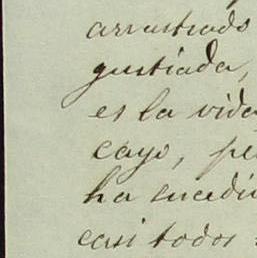 arrastrado
gustiada,
es la vida
cayo, pe
ha sucedi
casi todos